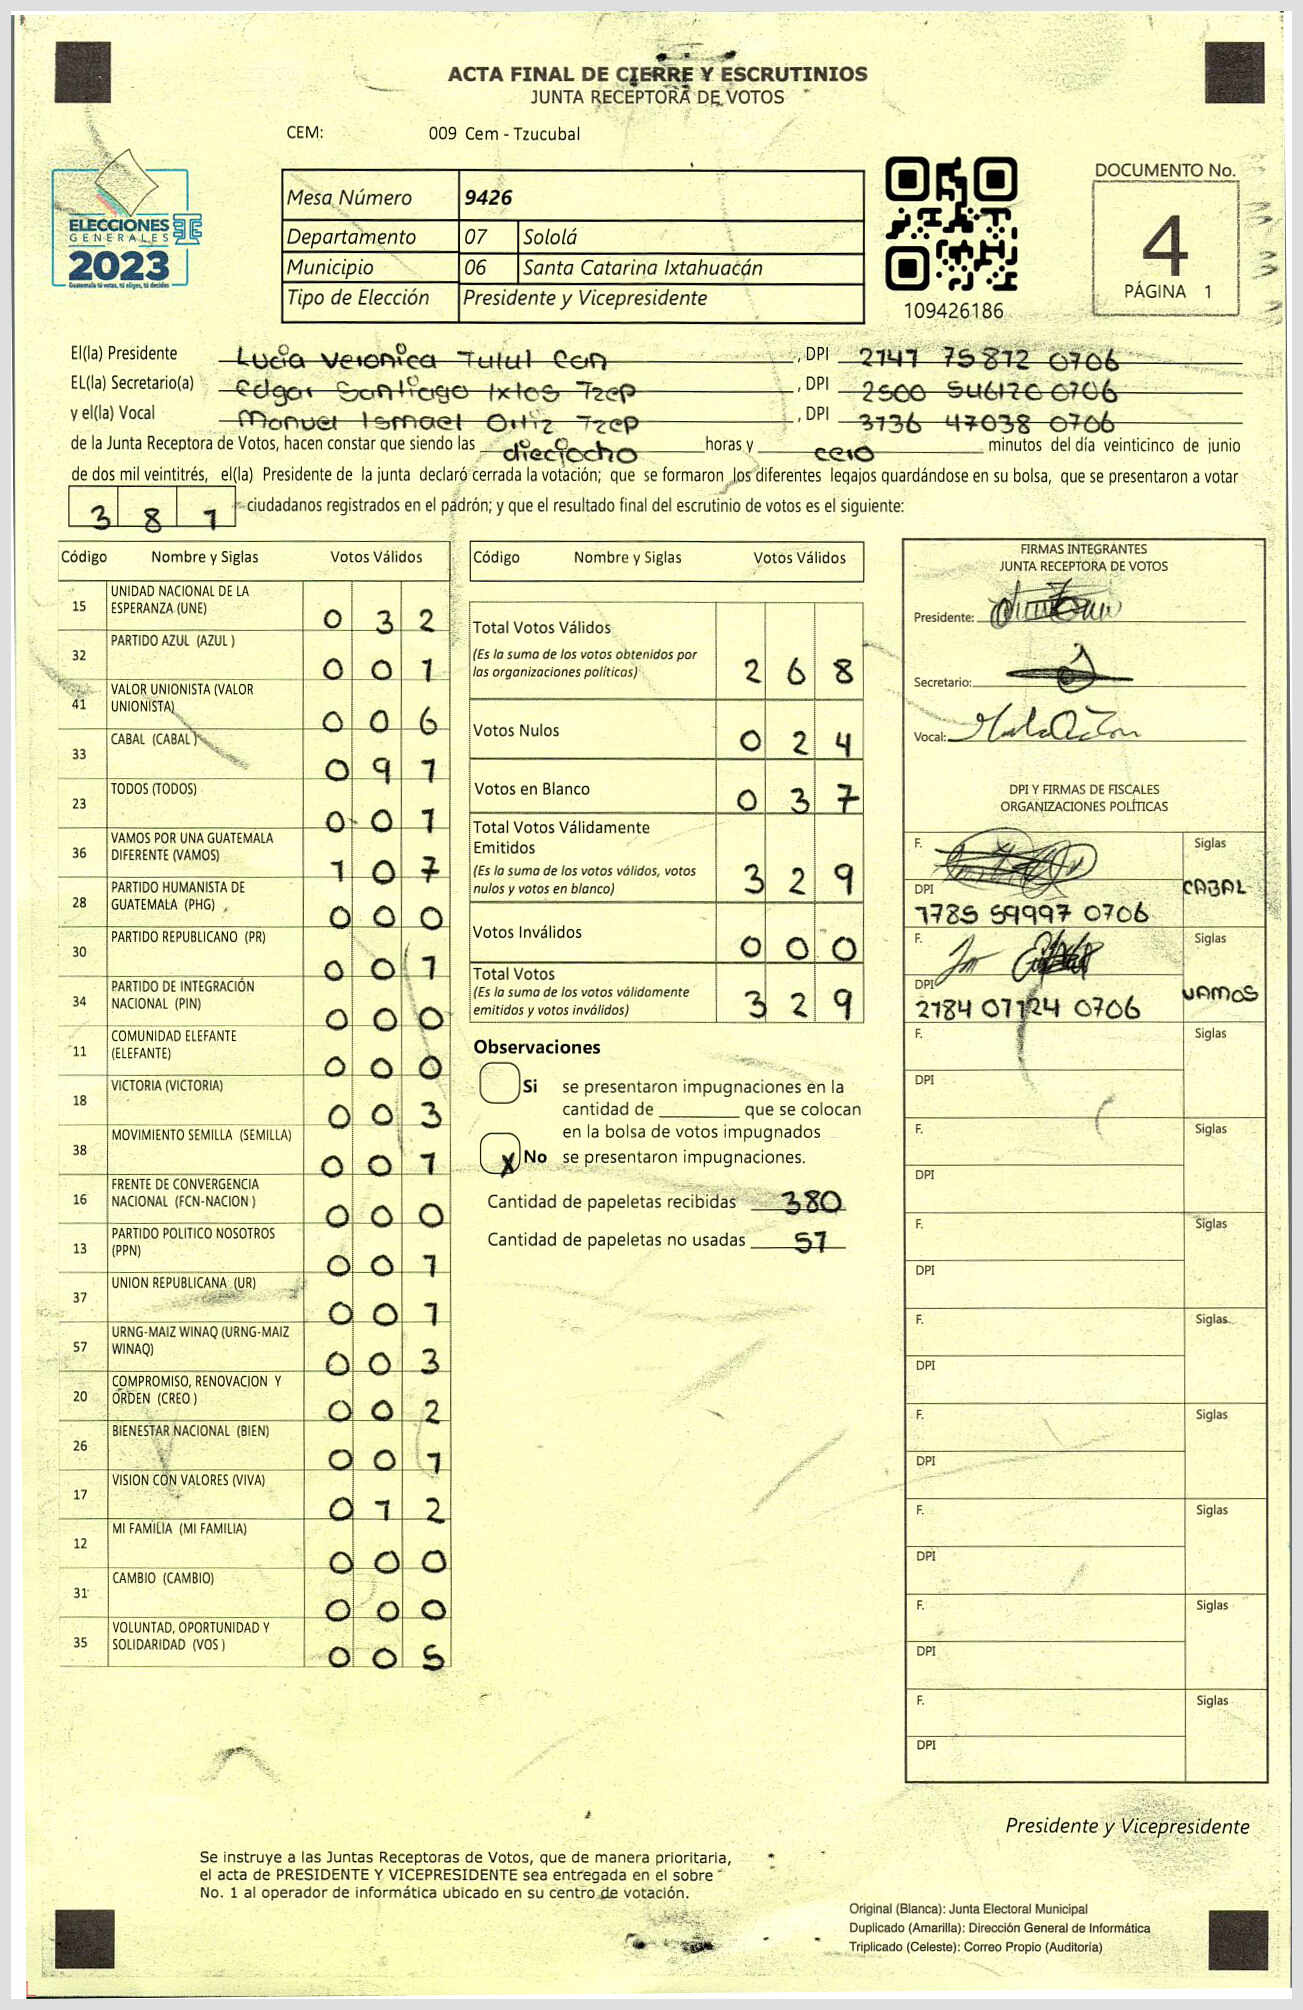 ACTA FINAL DE CIERRE Y ESCRUTINIOS
JUNTA RECEPTORA DE VOTOS
CEM: 009 Cem - Tzucubal
ELECCIONES
GENERALES
2023
Guatemala tú votas, tú eliges, tú decides
Mesa Número 9426
Departamento 07 Sololá
Municipio 06 Santa Catarina Ixtahuacán
Tipo de Elección Presidente y Vicepresidente
109426186
DOCUMENTO No.
4
PÁGINA 1
El(la) Presidente Lucia Veronica Tulul Can, DPI 2147 75872 0706
EL(la) Secretario(a) Edgar Santiago Ixtos Tzep, DPI 2500 546120 0706
y el(la) Vocal Manuel Ismael Ortiz Tzep, DPI 3736 47038 0706
de la Junta Receptora de Votos, hacen constar que siendo las dieciocho horas y cero minutos del día veinticinco de junio
de dos mil veintitrés, el(la) Presidente de la junta declaró cerrada la votación; que se formaron los diferentes legajos guardándose en su bolsa, que se presentaron a votar
381 ciudadanos registrados en el padrón; y que el resultado final del escrutinio de votos es el siguiente:
Código Nombre y Siglas Votos Válidos
15 UNIDAD NACIONAL DE LA ESPERANZA (UNE) 032
32 PARTIDO AZUL (AZUL ) 001
41 VALOR UNIONISTA (VALOR UNIONISTA) 006
33 CABAL (CABAL ) 097
23 TODOS (TODOS) 001
36 VAMOS POR UNA GUATEMALA DIFERENTE (VAMOS) 107
28 PARTIDO HUMANISTA DE GUATEMALA (PHG) 000
30 PARTIDO REPUBLICANO (PR) 001
34 PARTIDO DE INTEGRACIÓN NACIONAL (PIN) 000
11 COMUNIDAD ELEFANTE (ELEFANTE) 000
18 VICTORIA (VICTORIA) 003
38 MOVIMIENTO SEMILLA (SEMILLA) 001
16 FRENTE DE CONVERGENCIA NACIONAL (FCN-NACION ) 000
13 PARTIDO POLITICO NOSOTROS (PPN) 001
37 UNION REPUBLICANA (UR) 001
57 URNG-MAIZ WINAQ (URNG-MAIZ WINAQ) 003
20 COMPROMISO, RENOVACION Y ORDEN (CREO ) 002
26 BIENESTAR NACIONAL (BIEN) 001
17 VISION CON VALORES (VIVA) 012
12 MI FAMILIA (MI FAMILIA) 000
31 CAMBIO (CAMBIO) 000
35 VOLUNTAD, OPORTUNIDAD Y SOLIDARIDAD (VOS ) 005
Código Nombre y Siglas Votos Válidos
Total Votos Válidos
(Es la suma de los votos obtenidos por
las organizaciones políticas) 268
Votos Nulos 024
Votos en Blanco 037
Total Votos Válidamente
Emitidos
(Es la suma de los votos válidos, votos
nulos y votos en blanco) 329
Votos Inválidos 000
Total Votos
(Es la suma de los votos válidamente
emitidos y votos inválidos) 329
Observaciones
Si se presentaron impugnaciones en la
cantidad de ________ que se colocan
en la bolsa de votos impugnados
X No se presentaron impugnaciones.
Cantidad de papeletas recibidas 380
Cantidad de papeletas no usadas 57
FIRMAS INTEGRANTES
JUNTA RECEPTORA DE VOTOS
Presidente:
Secretario:
Vocal:
DPI Y FIRMAS DE FISCALES
ORGANIZACIONES POLÍTICAS
F. Siglas
DPI CABAL
1785 59997 0706
F. Siglas
DPI VAMOS
2184 07124 0706
F. Siglas
DPI
F. Siglas
DPI
F. Siglas
DPI
F. Siglas
DPI
F. Siglas
DPI
F. Siglas
DPI
F. Siglas
DPI
F. Siglas
DPI
Presidente y Vicepresidente
Se instruye a las Juntas Receptoras de Votos, que de manera prioritaria,
el acta de PRESIDENTE Y VICEPRESIDENTE sea entregada en el sobre
No. 1 al operador de informática ubicado en su centro de votación.
Original (Blanca): Junta Electoral Municipal
Duplicado (Amarilla): Dirección General de Informática
Triplicado (Celeste): Correo Propio (Auditoría)